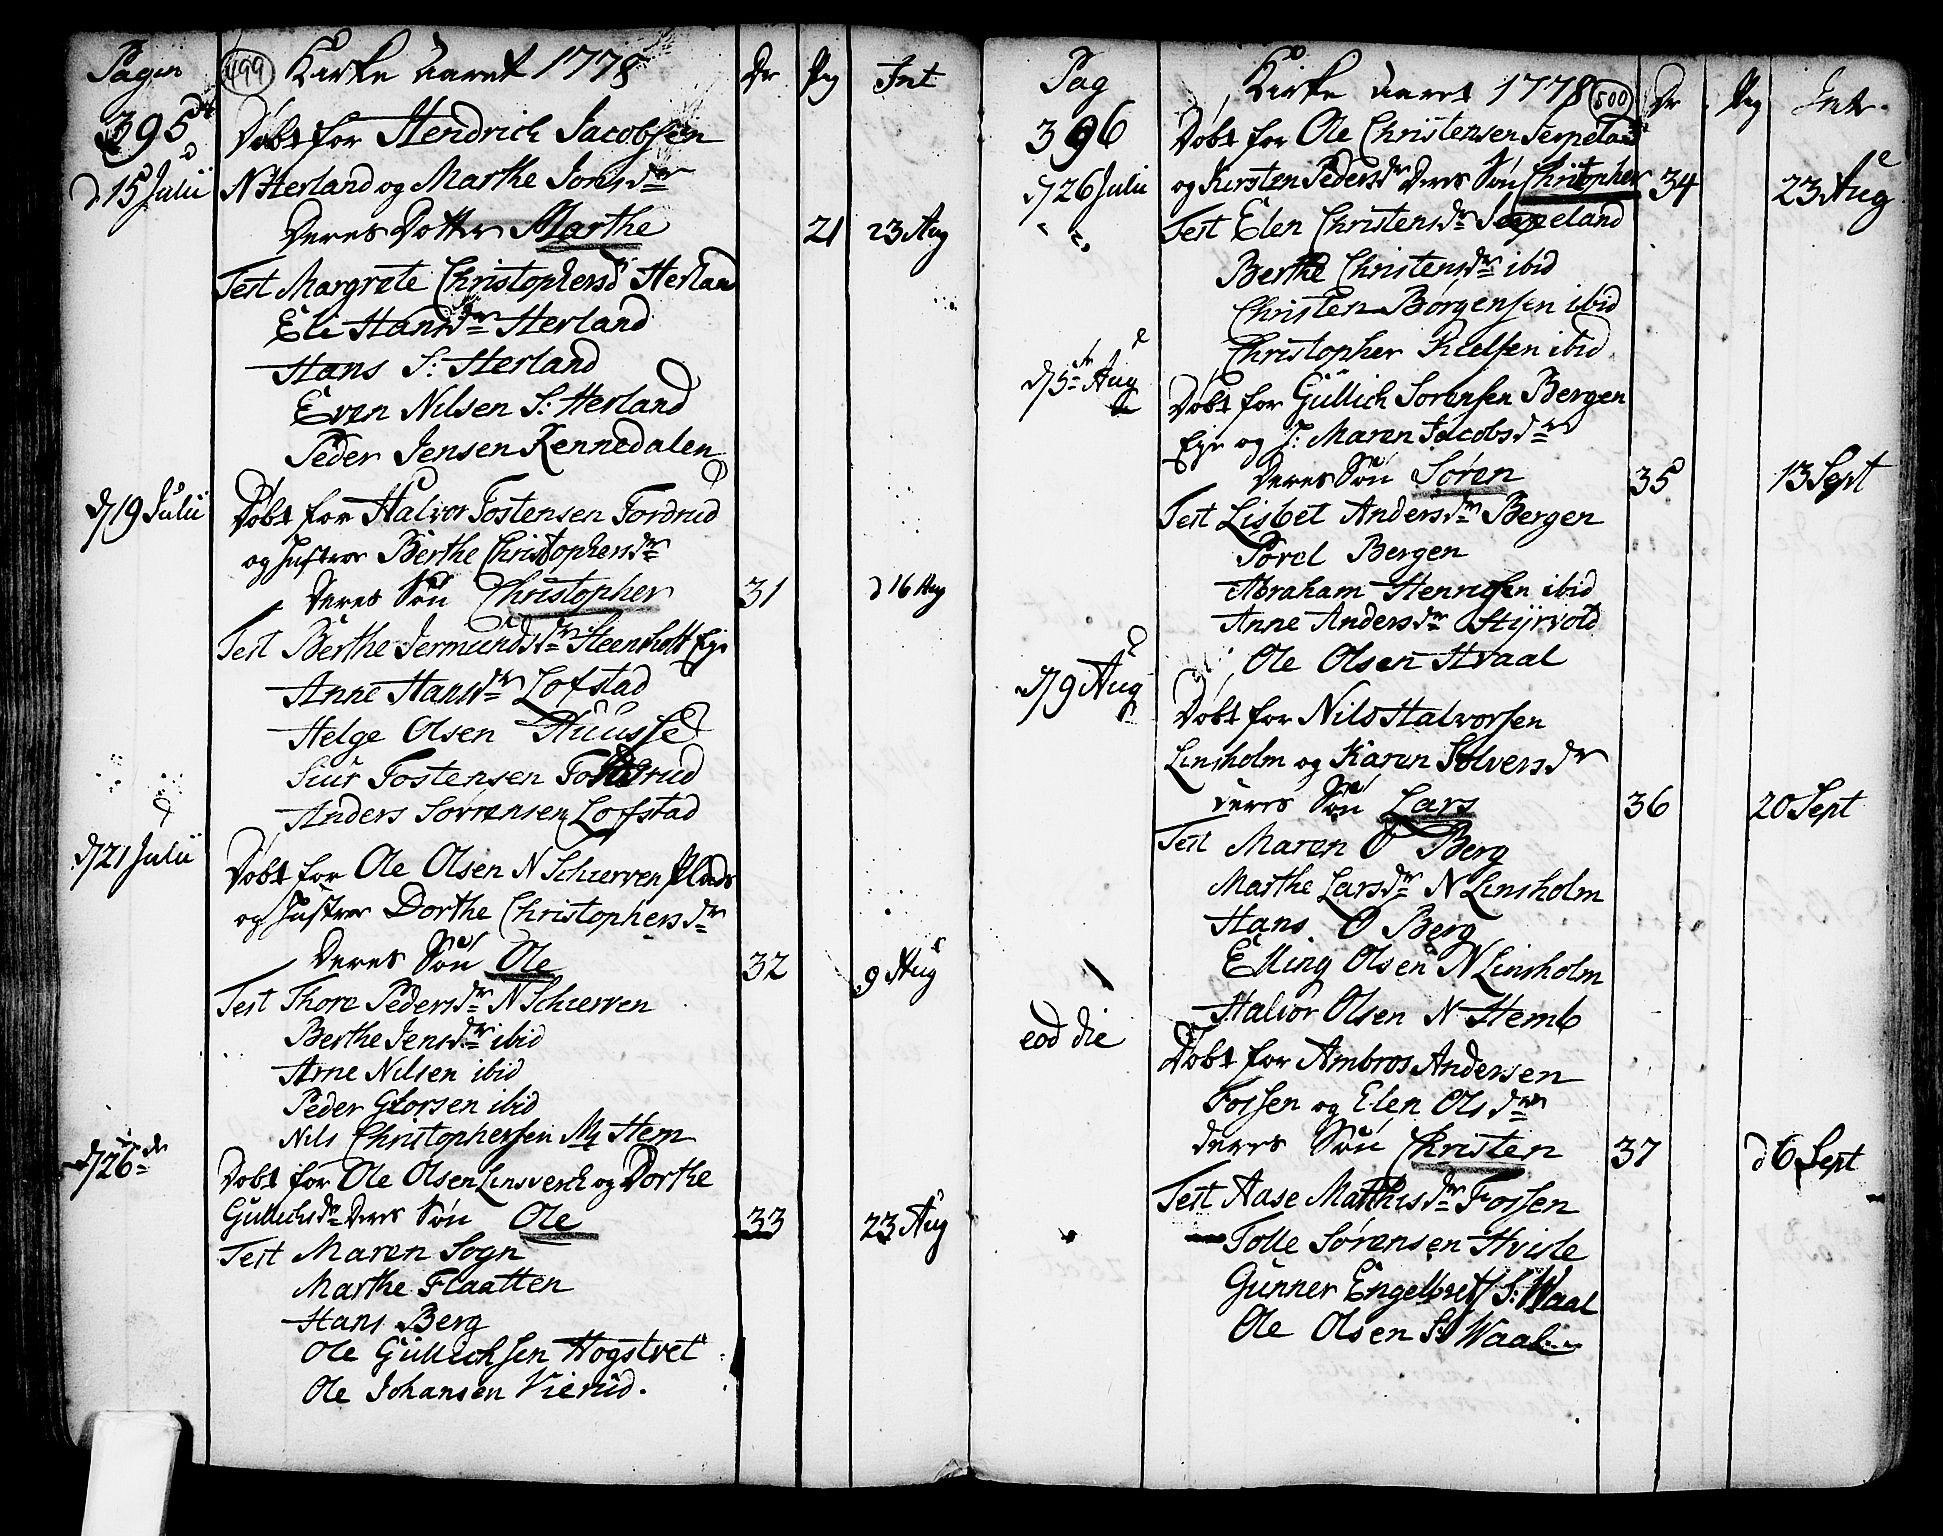 Pagin
499 Kirke Aaret 1778 Dr Pig Int
395
Døbt for Hendrich Jacobsen
d 15 Julii N Herland og Marthe Jons dr
Deres Dotter Marthe 21 23 Aug
Test Margrete Christophersdr Herland
Eli Hans dr Herland
Hans S: Herland
Even Nilsen S: Herland
Peder Jensen Kennedalen
d 19 Julii Døbt for Halvor Tostensen Fordrud
og Hustroe Berthe Christophers dr
Deres Søn Christopher 31 d 16 Aug
Test Berthe Jermunds dr Steensholt Eje
Anne Hans dr Lofstad
Helge Olsen Huusse
Siur Tostensen Fordrud
Anders Sørrensen Lofstad
d 21 Julii Døbt for Ole Olsen N Schierven Plads
og Hustroe Dorthe Christophers dr
Deres Søn Ole 32 9 Aug
Test Thore Peders dr N Schierven
Berthe Jens dr ibid
Arne Nilsen ibid
Peder Glorsen ibid
Nils Christophersen M Hem
d 26 de Døbt for Ole Olsen Linsverch og Dorthe
Gullichs dr Deres Søn Ole 33 23 Aug
Test Maren Sogn
Marthe Flaatten
Hans Berg
Ole Gullichsen Hogstvet
Ole Johansen Vierud.
Pag Kirke Aaret 1778 500 Dr Pig Intr.
396 Døbt for Ole Christensen Serpeland
d 26 Julii og Kirsten Peders dr Deres Søn Christopher 34 23 Aug
Test Elen Christens dr Serpeland
Berthe Christens dr ibid
Christen Børgensen ibid
Christopher Kielsen ibid
d 5te Aug Døbt for Gullich Sorensen Bergen
Eje og H: Maren Jacobs dr
Deres Søn Søren 35 13 Sept
Test Lisbet Anders dr Bergen
Porel Bergen
Abraham Henrichsen ibid
Anne Anders dr Styrvold
Ole Olsen Hvaal
d 9 Aug Døbt for Nils Halvorsen
Linsholm og Karen Solvers dr
deres Søn Lars 36 20 Sept
Test Maren O Berg
Marthe Lars dr N Linsholm
Hans O Berg
Elling Olsen N Linsholm
Halvor Olsen N Hemb
eod die Døbt for Ambros Andersen
Fossen og Elen Ols dr
deres Søn Christen 37 d 6 Sept
Test Aase Mathis dr Fossen
Tolle Sørensen Hvisle
Gunner Engelbret S: Waal
Ole Olsen S: Waal